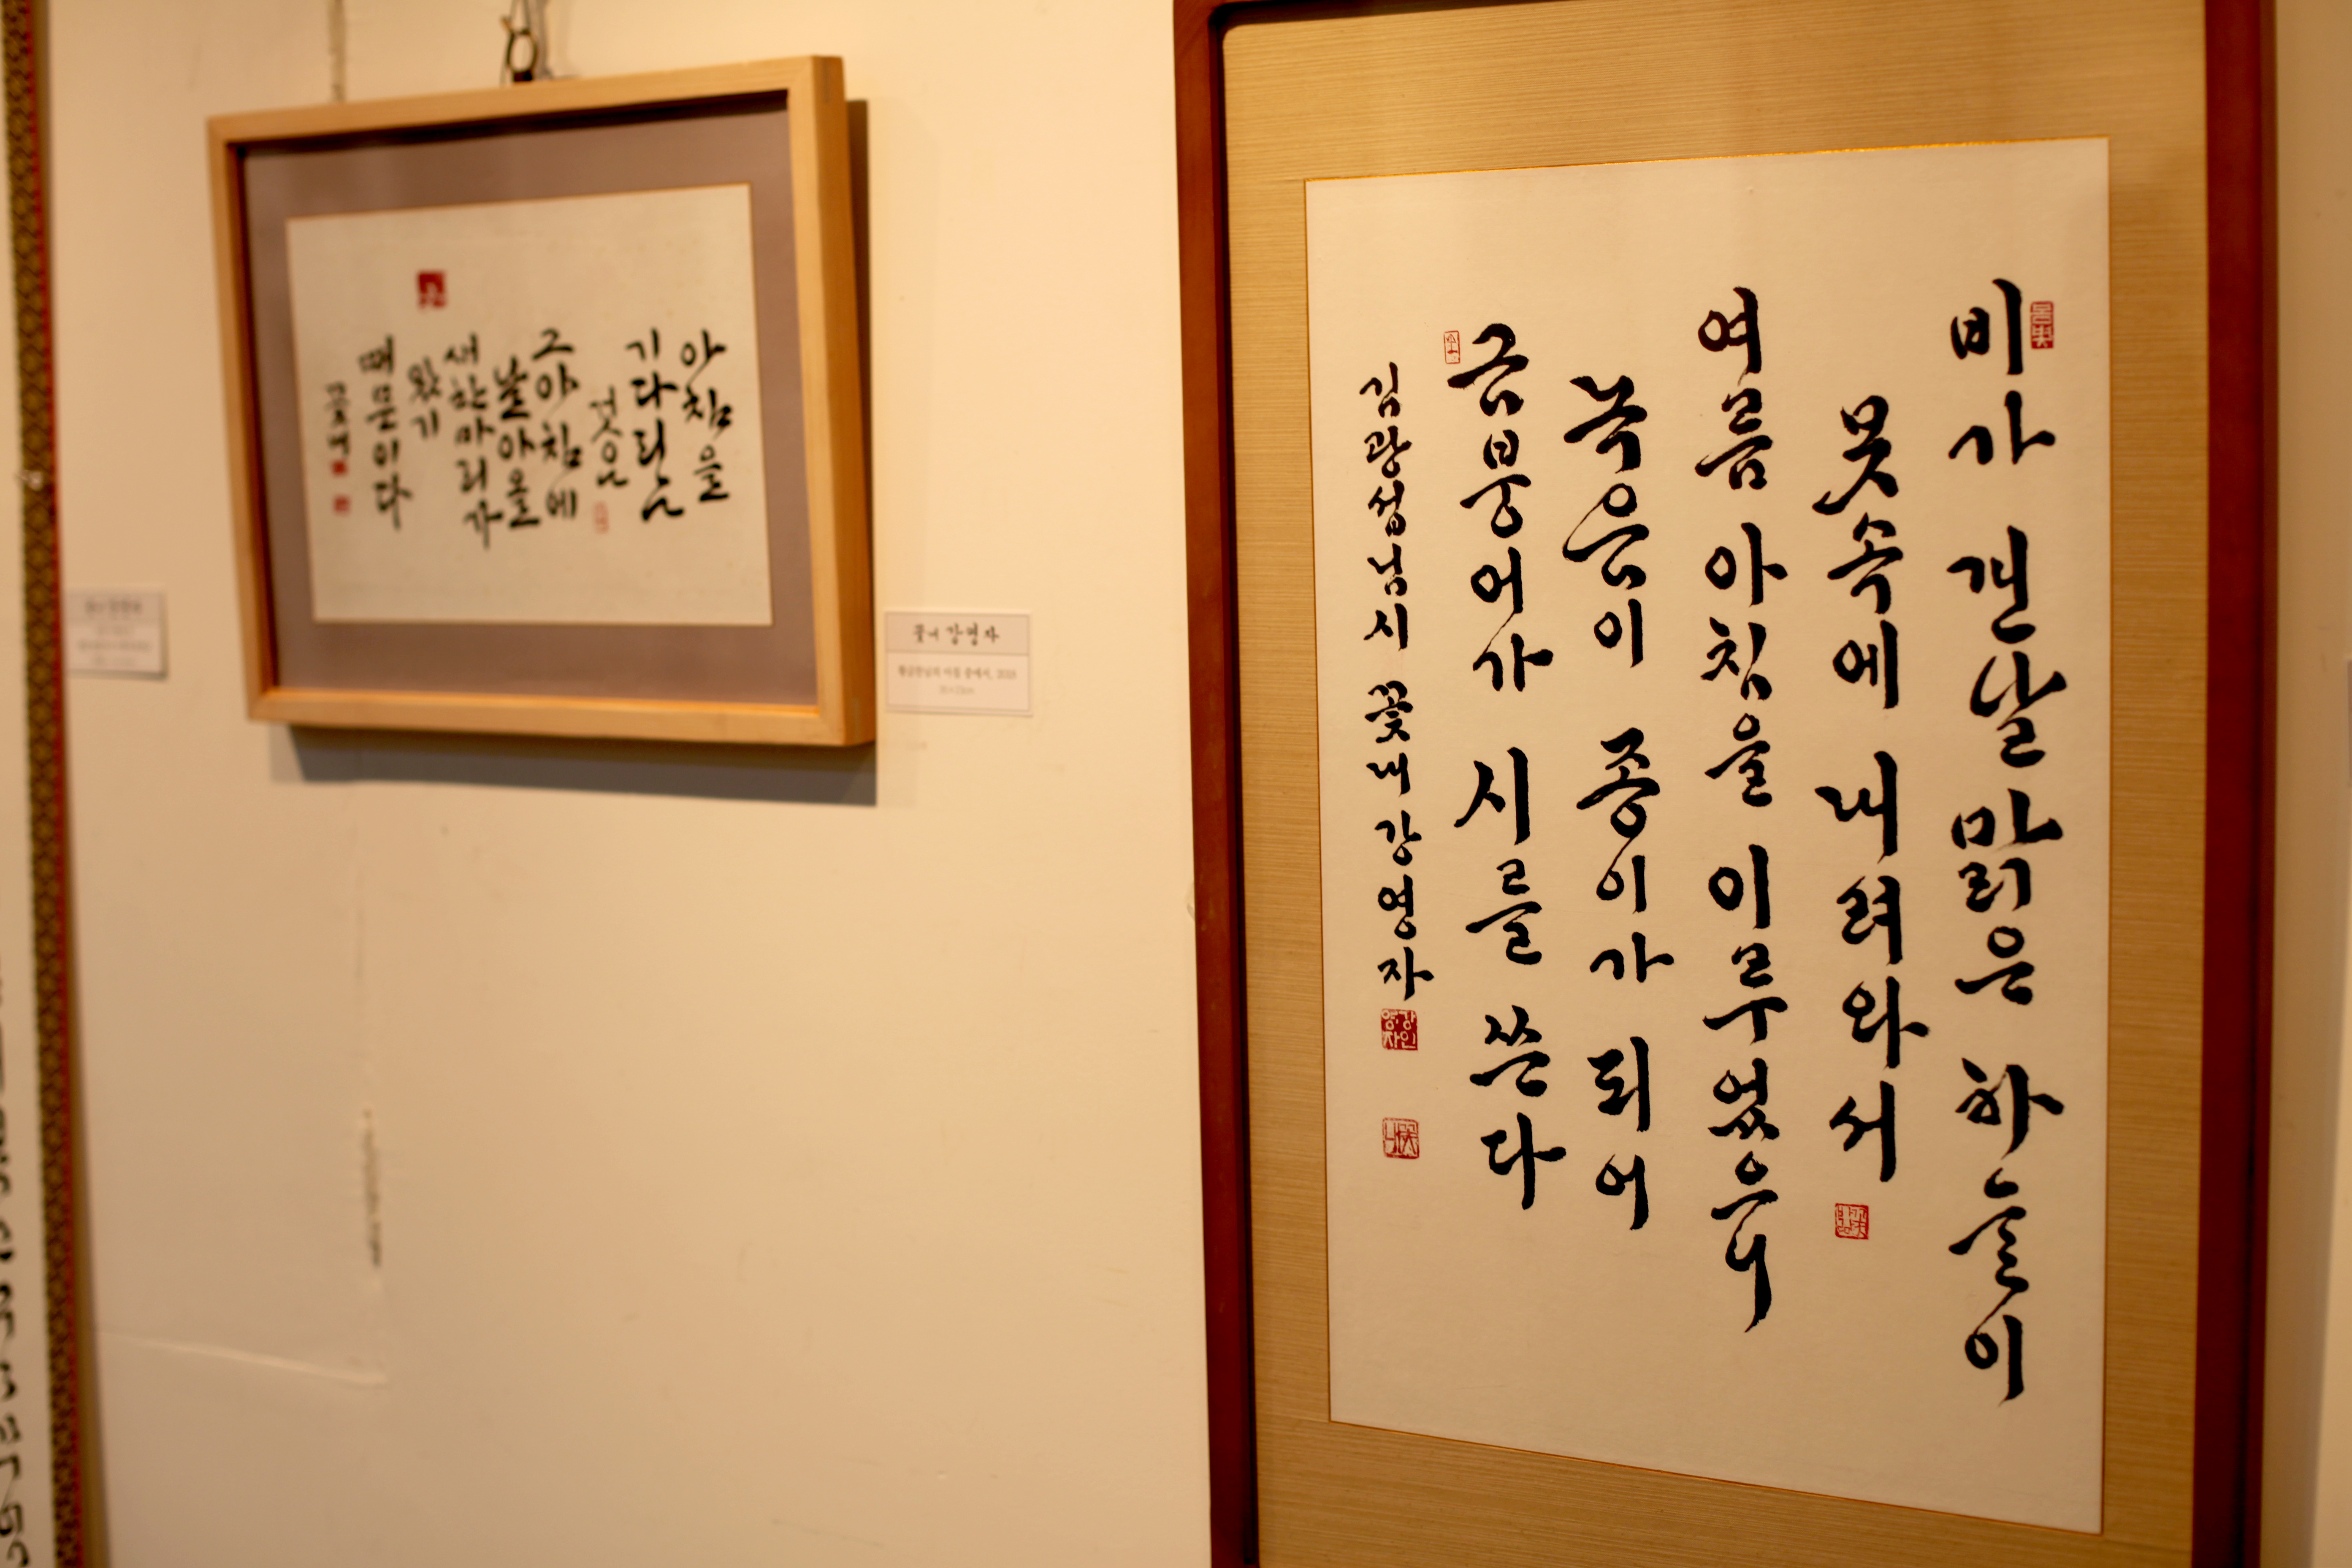 비가 갠 날 맑은 하늘이
못 속에 내려와서
여름 아침을 이루었으니
녹음이 종이가 되어
금붕어가 시를 쓴다
김광섭님 시 꽃내 강영자
아침을
기다리는
것은
그 아침에
날아올
새 한 마리가
왔기
때문이다
꽃내
꽃내 강영자